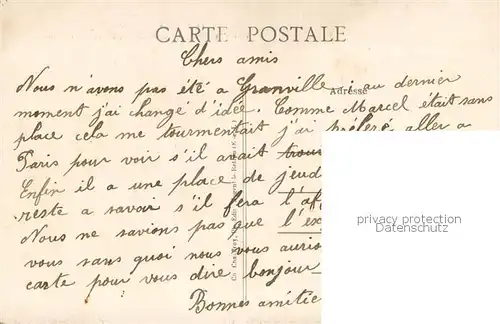 CARTE POSTALE
Chers amis
Nous n'avons pas été a Granville au dernier
Adresse
moment j'ai changé d'idée. Comme Marcel était sans
place cela me tourmentait j'ai préféré aller a
Paris pour voir s'il avait
Enfin il a une place de
reste a savoir s'il fera l'af
Nous ne savions pas que l'ex
vous sans quoi nous vous aurio
carte pour vous dire bonjour
Bonnes amitié
privacy protection
Datenschutz